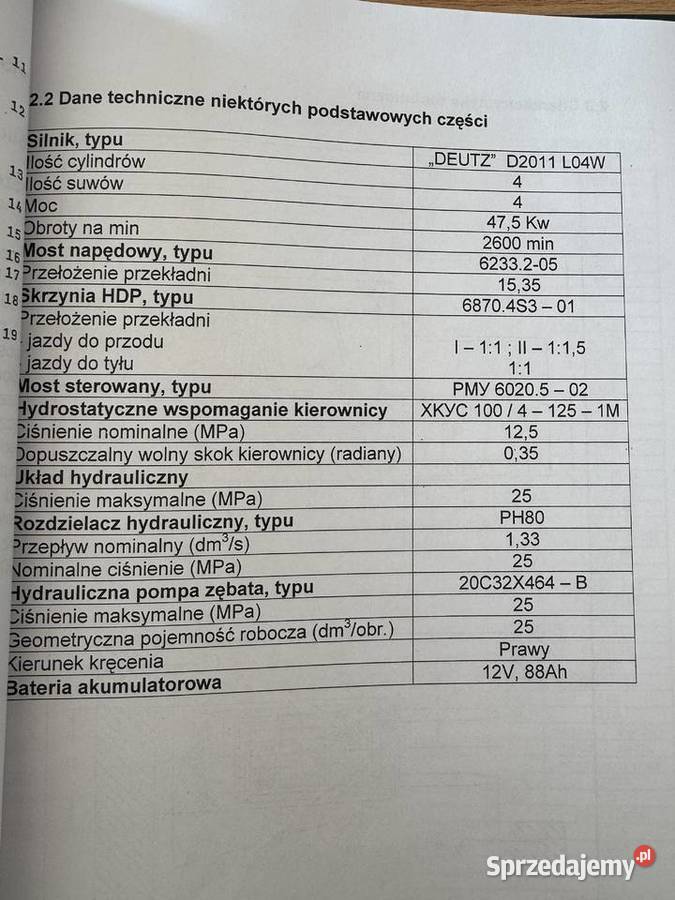 11
12
13
14
15
16
17
18
19
2.2 Dane techniczne niektórych podstawowych części
Silnik, typu „DEUTZ” D2011 L04W
Ilość cylindrów 4
Ilość suwów 4
Moc 47,5 Kw
Obroty na min 2600 min
Most napędowy, typu 6233.2-05
Przełożenie przekładni 15,35
Skrzynia HDP, typu 6870.4S3 – 01
Przełożenie przekładni
- jazdy do przodu I – 1:1 ; II – 1:1,5
- jazdy do tyłu 1:1
Most sterowany, typu РМУ 6020.5 – 02
Hydrostatyczne wspomaganie kierownicy ХКУС 100 / 4 – 125 – 1М
Ciśnienie nominalne (MPa) 12,5
Dopuszczalny wolny skok kierownicy (radiany) 0,35
Układ hydrauliczny
Ciśnienie maksymalne (MPa) 25
Rozdzielacz hydrauliczny, typu PH80
Przepływ nominalny (dm³/s) 1,33
Nominalne ciśnienie (MPa) 25
Hydrauliczna pompa zębata, typu 20C32X464 – B
Ciśnienie maksymalne (MPa) 25
Geometryczna pojemność robocza (dm³/obr.) 25
Kierunek kręcenia Prawy
Bateria akumulatorowa 12V, 88Ah
Sprzedajemy.pl